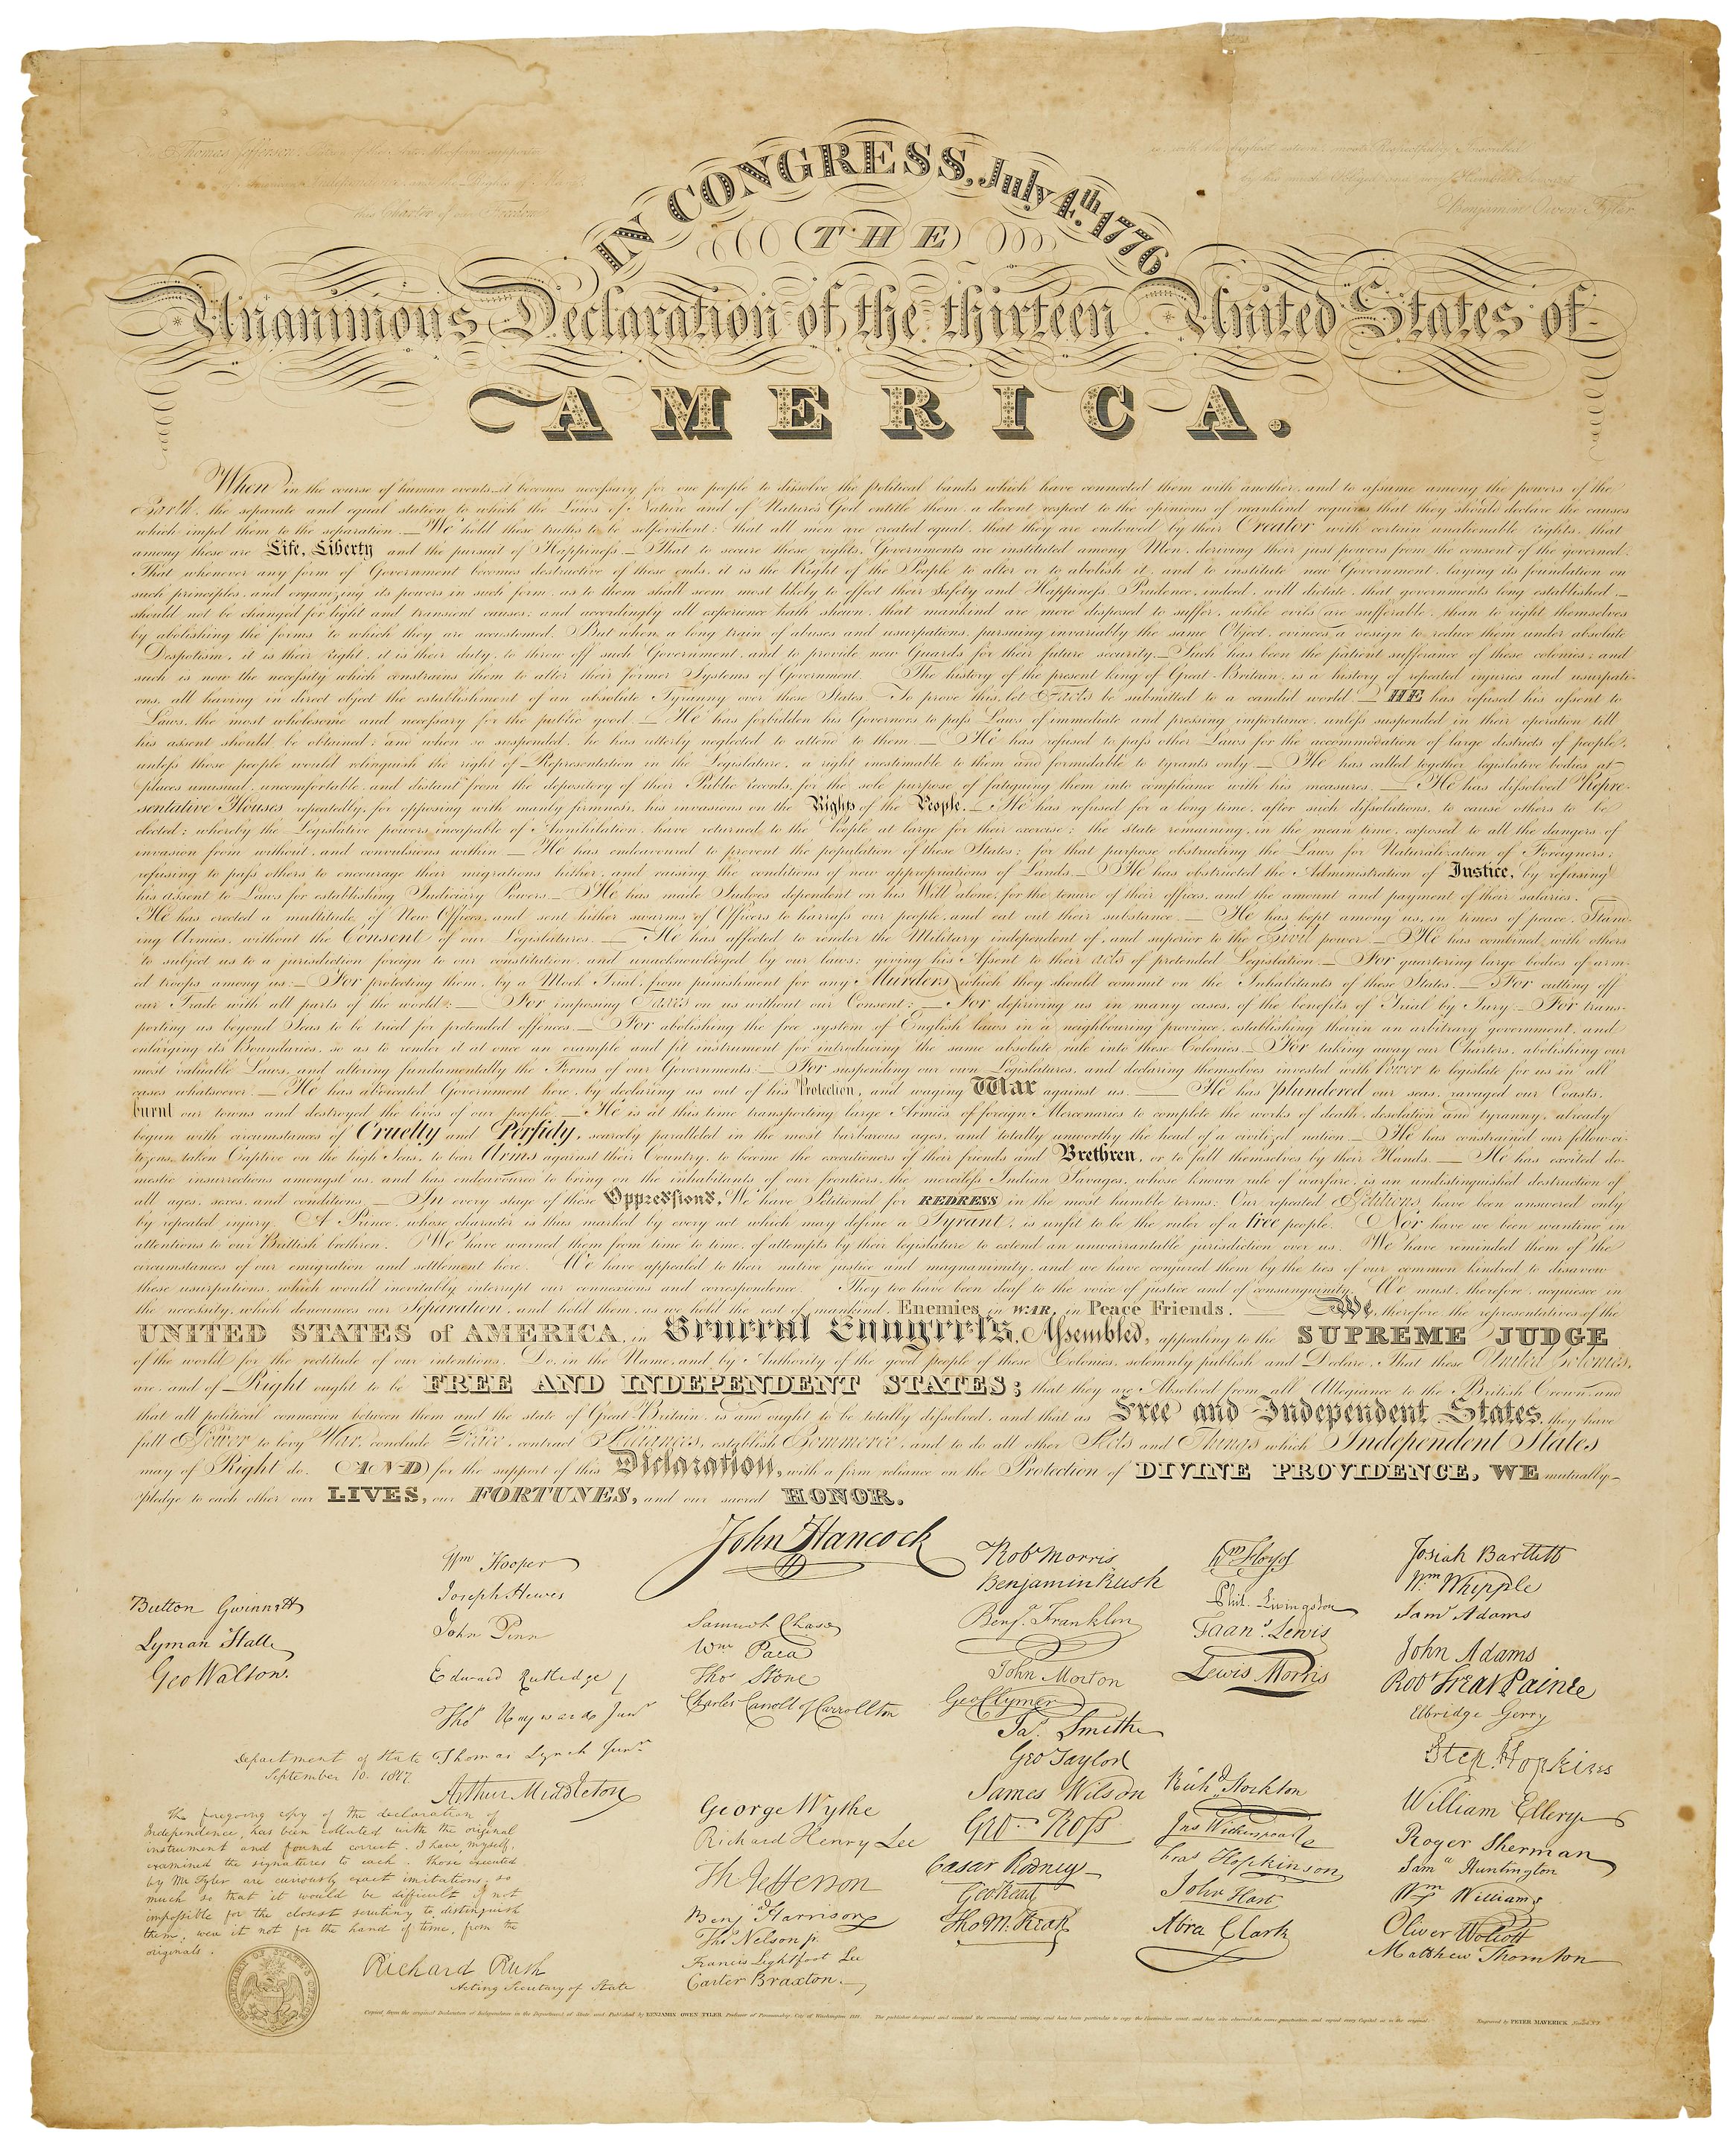 Thomas Jefferson
this Charter of our Freedom
is with the highest esteem, most Respectfully Inscribed
by his much Obliged
Humble Servant
Benjamin Owen Tyler
IN CONGRESS, July 4th. 1776
THE
Unanimous Declaration of the thirteen United States of
AMERICA.
When in the course of human events it becomes necessary for one people to dissolve the political bands which have connected them with another, and to assume among the powers of the
Earth, the separate and equal station to which the Laws of Nature and of Nature's God entitle them, a decent respect to the opinions of mankind requires that they should declare the causes
which impel them to the separation.— We hold these truths to be selfevident; that all men are created equal, that they are endowed by their Creator with certain unalienable rights, that
among these are Life, Liberty and the pursuit of Happiness— That to secure these rights, Governments are instituted among Men, deriving their just powers from the consent of the governed.
That whenever any form of Government becomes destructive of these ends, it is the Right of the People to alter or to abolish it, and to institute new Government, laying its foundation on
such principles, and organizing its powers in such form, as to them shall seem most likely to effect their Safety and Happiness. Prudence, indeed, will dictate, that governments long established,—
should not be changed for light and transient causes; and accordingly all experience hath shewn, that mankind are more disposed to suffer, while evils are sufferable, than to right themselves
by abolishing the forms to which they are accustomed. But when a long train of abuses and usurpations, pursuing invariably the same Object, evinces a design to reduce them under absolute
Despotism, it is their right, it is their duty, to throw off such Government, and to provide new Guards for their future security.—Such has been the patient sufferance of these colonies; and
such is now the necessity which constrains them to alter their former Systems of Government. The history of the present king of Great-Britain, is a history of repeated injuries and usurpati-
ons, all having in direct object the establishment of an absolute Tyranny over these States. To prove this, let Facts be submitted to a candid world.— HE has refused his assent to
Laws, the most wholesome and necessary for the public good.— He has forbidden his Governors to pass Laws of immediate and pressing importance, unless suspended in their operation till
his assent should be obtained; and when so suspended, he has utterly neglected to attend to them.— He has refused to pass other Laws for the accommodation of large districts of people,
unless those people would relinquish the right of Representation in the Legislature, a right inestimable to them and formidable to tyrants only.— He has called together legislative bodies at
places unusual, uncomfortable, and distant from the depository of their Public Records, for the sole purpose of fatiguing them into compliance with his measures.— He has dissolved Repre-
sentative Houses repeatedly, for opposing with manly firmness, his invasions on the Rights of the People.— He has refused for a long time, after such dissolutions, to cause others to be
elected; whereby the Legislative powers incapable of Annihilation, have returned to the People at large for their exercise; the state remaining, in the mean time, exposed to all the dangers of
invasion from without, and convulsions within.— He has endeavoured to prevent the population of these States; for that purpose obstructing the Laws for Naturalization of Foreigners;
refusing to pass others to encourage their migrations hither, and causing the conditions of new appropriations of Lands.— He has obstructed the Administration of Justice, by refusing
his assent to Laws for establishing Judiciary Powers.— He has made Judges dependent on his Will alone, for the tenure of their offices, and the amount and payment of their salaries.—
He has erected a multitude of New Offices, and sent hither swarms of Officers to harrass our people, and eat out their substance.— He has kept among us, in times of peace, Stand-
ing Armies, without the Consent of our Legislatures.— He has affected to render the Military independent of, and superior to the Civil power.— He has combined with others
to subject us to a jurisdiction foreign to our constitution, and unacknowledged by our laws; giving his Assent to their acts of pretended Legislation.— For quartering large bodies of arm-
ed troops among us:— For protecting them, by a Mock Trial, from punishment for any Murders which they should commit on the Inhabitants of these States.— For cutting off
our Trade with all parts of the world:— For imposing Taxes on us without our Consent:— For depriving us in many cases, of the benefits of Trial by Jury.— For trans-
porting us beyond Seas to be tried for pretended offences.— For abolishing the free system of English laws in a neighbouring province, establishing therein an arbitrary government, and
enlarging its Boundaries, so as to render it at once an example and fit instrument for introducing the same absolute rule into these Colonies.— For taking away our Charters, abolishing our
most valuable Laws, and altering fundamentally the Forms of our Governments:— For suspending our own Legislatures, and declaring themselves invested with Power to legislate for us in all
cases whatsoever.— He has abdicated Government here, by declaring us out of his Protection, and waging War against us.— He has plundered our seas, ravaged our Coasts,
burnt our towns and destroyed the lives of our people.— He is at this time transporting large Armies of foreign Mercenaries to complete the works of death, desolation and tyranny, already
begun with circumstances of Cruelty and Perfidy, scarcely paralleled in the most barbarous ages, and totally unworthy the head of a civilized nation.— He has constrained our fellow-ci-
tizens taken Captive on the high Seas, to bear Arms against their Country, to become the executioners of their friends and Brethren, or to fall themselves by their Hands.— He has excited do-
mestic insurrections amongst us, and has endeavoured to bring on the inhabitants of our frontiers, the merciless Indian Savages, whose known rule of warfare, is an undistinguished destruction of
all ages, sexes, and conditions.— In every stage of these Oppressions, We have Petitioned for REDRESS in the most humble terms: Our repeated Petitions have been answered only
by repeated injury. A Prince, whose character is thus marked by every act which may define a Tyrant, is unfit to be the ruler of a free people. Nor have we been wanting in
attentions to our Brittish brethren. We have warned them from time to time, of attempts by their legislature to extend an unwarrantable jurisdiction over us. We have reminded them of the
circumstances of our emigration and settlement here. We have appealed to their native justice and magnanimity, and we have conjured them by the ties of our common kindred to disavow
these usurpations, which would inevitably interrupt our connexions and correspondence. They too have been deaf to the voice of justice and of consanguinity. We must, therefore, acquiesce in
the necessity, which denounces our Separation, and hold them, as we hold the rest of mankind, Enemies in WAR, in Peace Friends.— We, therefore, the representatives of the
UNITED STATES of AMERICA, in General Congress, Assembled, appealing to the SUPREME JUDGE
of the world for the rectitude of our intentions, Do, in the Name, and by Authority of the good people of these Colonies, solemnly publish and Declare, That these United Colonies,
are, and of Right ought to be FREE AND INDEPENDENT STATES; that they are Absolved from all Allegiance to the British Crown, and
that all political connexion between them and the state of Great-Britain, is and ought to be totally dissolved, and that as Free and Independent States, they have
full Power to levy War, conclude Peace, contract Alliances, establish Commerce, and to do all other Acts and Things which Independent States
may of Right do. AND for the support of this Declaration, with a firm reliance on the Protection of DIVINE PROVIDENCE, WE mutually
pledge to each other our LIVES, our FORTUNES, and our sacred HONOR.
John Hancock
Button Gwinnett
Lyman Hall
Geo Walton.
Wm Hooper
Joseph Hewes
John Penn
Edward Rutledge /
Thos Heyward Junr
Thomas Lynch Junr
Arthur Middleton
Samuel Chase
Wm Paca
Thos Stone
Charles Carroll of Carrollton
George Wythe
Richard Henry Lee
Th Jefferson
Benj Harrison
Thos Nelson jr.
Francis Lightfoot Lee
Carter Braxton.
Robt Morris
Benjamin Rush
Benj. Franklin
John Morton
Geo Clymer
Jas. Smith
Geo Taylor
James Wilson
Geo Ross
Caesar Rodney
Geo Read
Tho M:Kean
Wm Floyd
Phil. Livingston
Frans. Lewis
Lewis Morris
Richd Stockton
Jno Witherspoon
Fras Hopkinson
John Hart
Abra Clark
Josiah Bartlett
Wm Whipple
Saml Adams
John Adams
Robt Treat Paine
Elbridge Gerry
Step. Hopkins
William Ellery
Roger Sherman
Saml Huntington
Wm Williams
Oliver Wolcott
Matthew Thornton
Department of State
September 10. 1817.
The foregoing copy of the declaration of
Independence, has been collated with the original
instrument and found correct. I have, myself,
examined the signatures to each. Those executed
by Mr Tyler are curiously exact imitations; so
much so that it would be difficult, if not
impossible for the closest scrutiny to distinguish
them, were it not for the hand of time, from the
originals.
Richard Rush
Acting Secretary of State
Copied from the original Declaration of Independence in the Department of State and Published by BENJAMIN OWEN TYLER, Professor of Penmanship, City of Washington 1818. The publisher designed and executed the ornamental writing, and has been particular to copy the Facsimilies exact, and has also observed the same punctuation, and copied every Capital as in the original.
Engraved by PETER MAVERICK, Newark N.J.